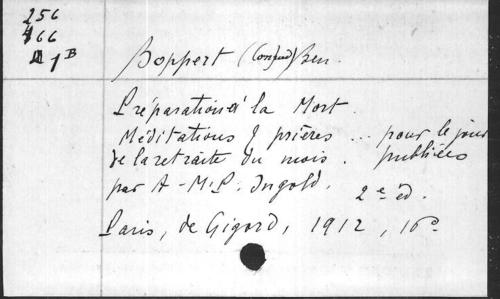 256
466
1 B
Boppert (Conrad) Ben.
Préparation à la Mort
Méditations & prières ... pour le jour
de la retraite du mois . publiées
par A-M.P. Ingold. 2e éd.
Paris, de Gigord, 1912, 16o.